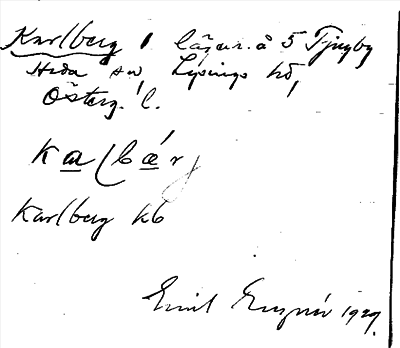 Karlberg 1 lägenh. å 5 Tjugby
Heda sn Lysings hd,
Österg. l.
Ka lbä́r j
Karlberg kb
Emil 1929.